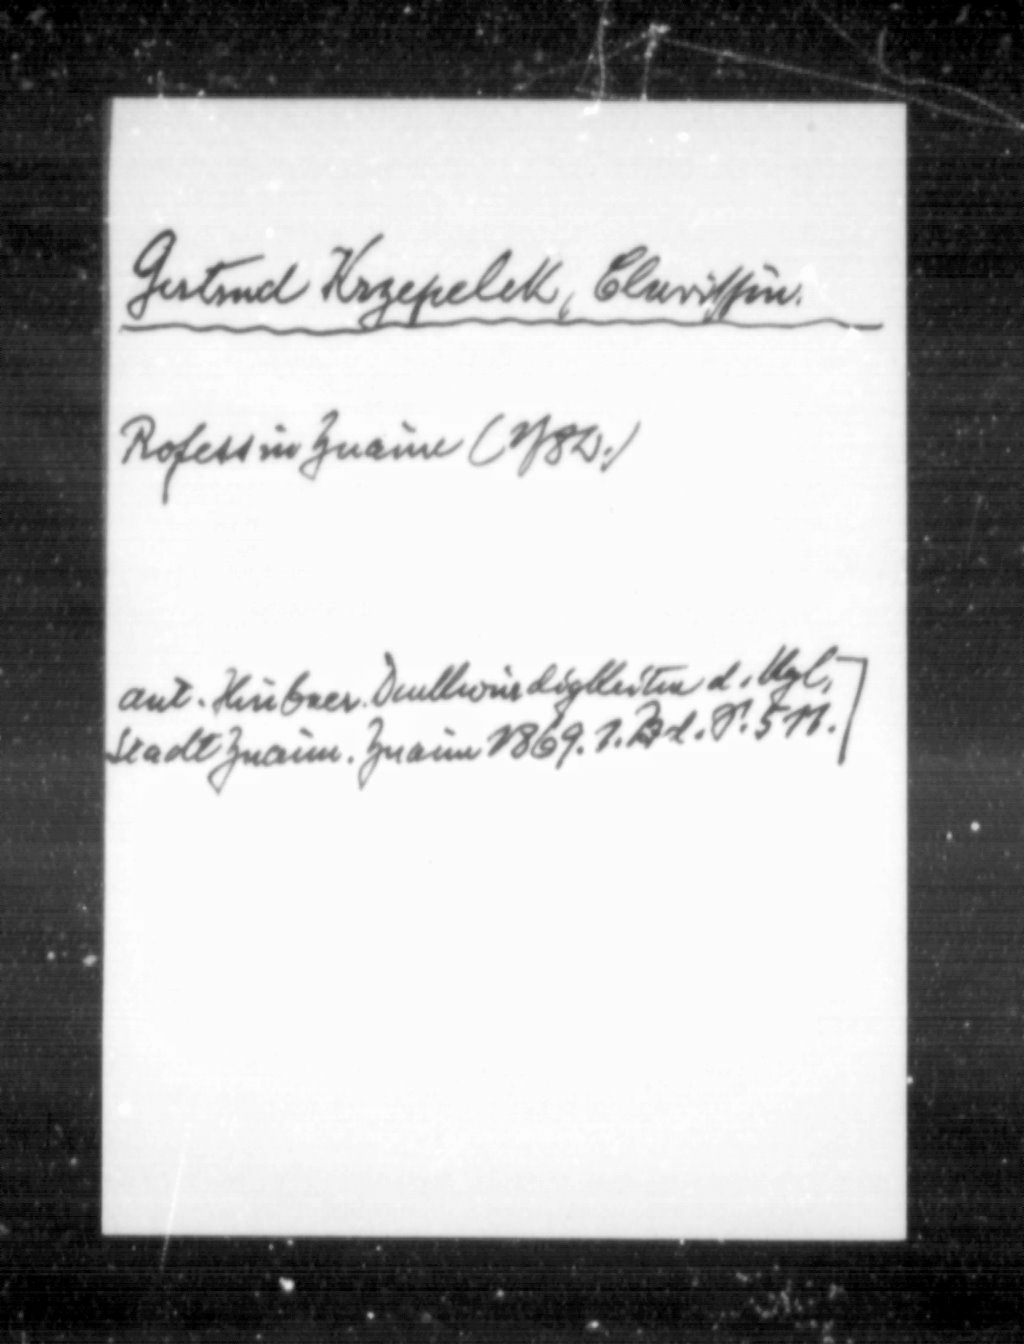 Gertrud Krzepelek, Clarissin.
Profess in Znaim (1782.)
Ant. Hübner. Denkwürdigkeiten d. kgl.
Stadt Znaim. Znaim 1869. 1. Bd. S. 511.]